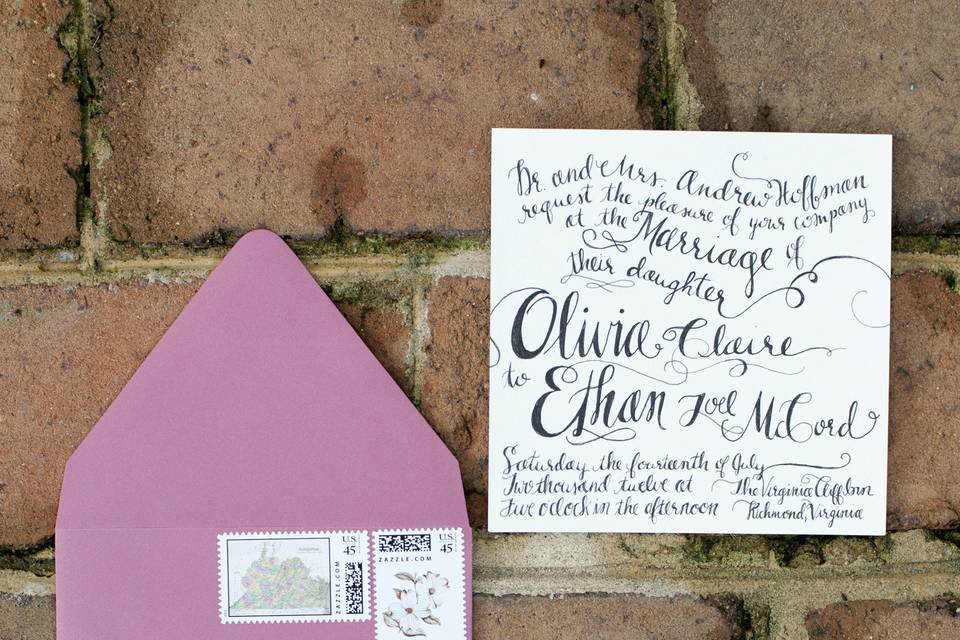 Dr. and Mrs. Andrew Hoffman
request the pleasure of your company
at the Marriage of
their daughter
Olivia Claire
to Ethan Joel McCord
Saturday the fourteenth of July
Two thousand twelve at
Five o'clock in the afternoon
The Virginia Cliff Inn
Richmond, Virginia
U.S.
45
ZAZZLE.COM
U.S.
45
ZAZZLE.COM